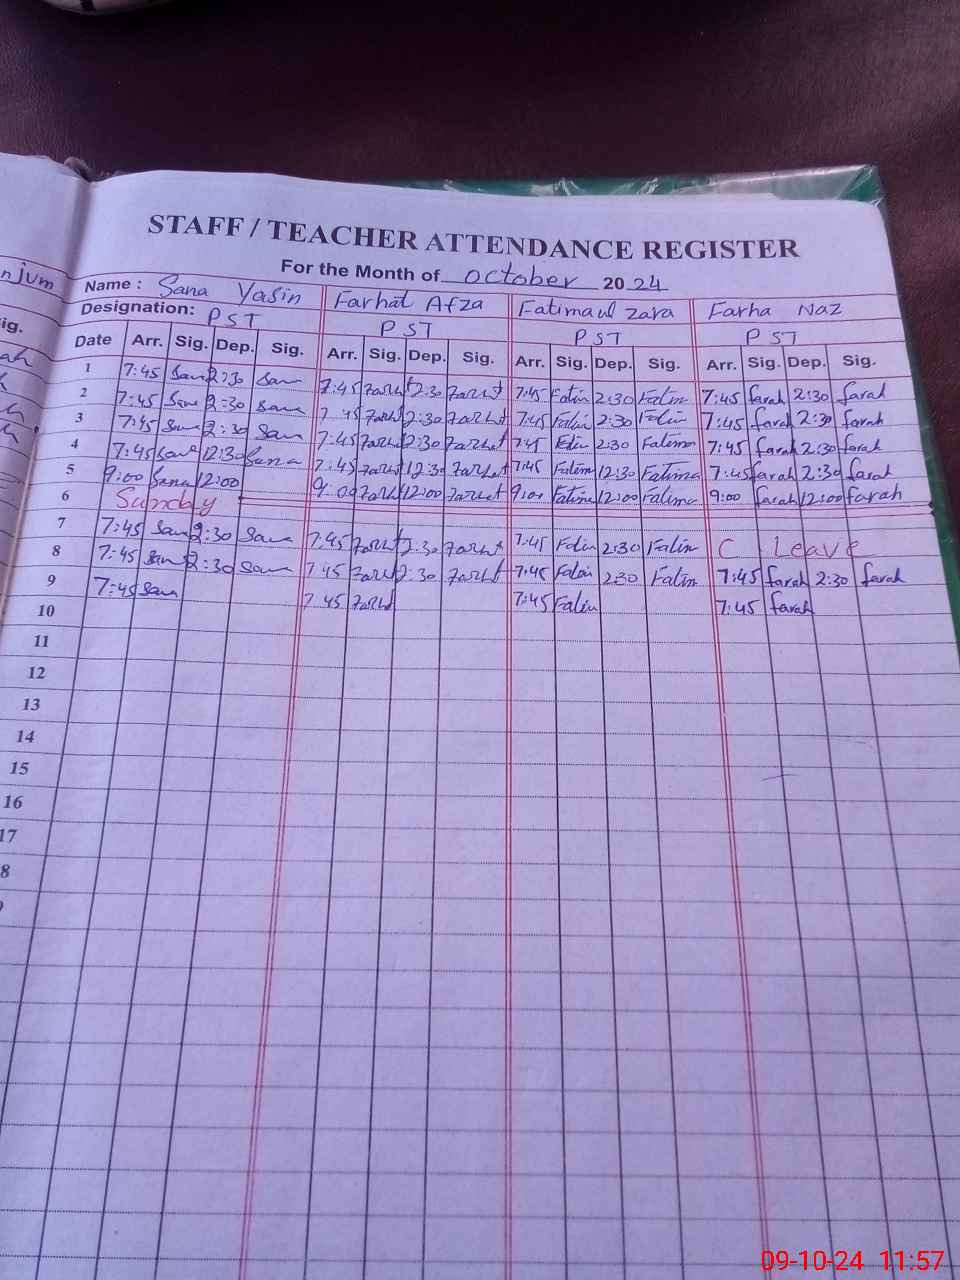 STAFF / TEACHER ATTENDANCE REGISTER
For the Month of October 2024
njum
Name : Sana Yasin Farhat Afza Fatimaul Zara Farha Naz
Designation: PST PST PST PST
ig.
Date Arr. Sig. Dep. Sig. Arr. Sig. Dep. Sig. Arr. Sig. Dep. Sig. Arr. Sig. Dep. Sig.
1 7:45 San 2:30 San 7:45 Farht 2:30 Farht 7:45 Fatim 2:30 Fatim 7:45 farah 2:30 farah
2 7:45 Sana 2:30 San 7:45 Farht 2:30 Farht 7:45 Fatim 2:30 Fatim 7:45 farah 2:30 farah
3 7:45 San 2:30 San 7:45 Farht 2:30 Farht 7:45 Fatim 2:30 Fatima 7:45 farah 2:30 farah
4 7:45 Sana 12:30 Sana 7:45 Farht 12:30 Farht 7:45 Fatim 12:30 Fatima 7:45 farah 2:30 farah
5 9:00 Sana 12:00 9:00 Farht 12:00 Farht 9:00 Fatima 12:00 Fatima 9:00 farah 12:00 farah
6 Sunday
7 7:45 San 2:30 San 7:45 Farht 2:30 Farht 7:45 Fatim 2:30 Fatim C Leave
8 7:45 San 2:30 San 7:45 Farht 2:30 Farht 7:45 Fatim 2:30 Fatim 7:45 farah 2:30 farah
9 7:45 San 7:45 Farht 7:45 Fatim 7:45 farah
10
11
12
13
14
15
16
17
8
09-10-24 11:57